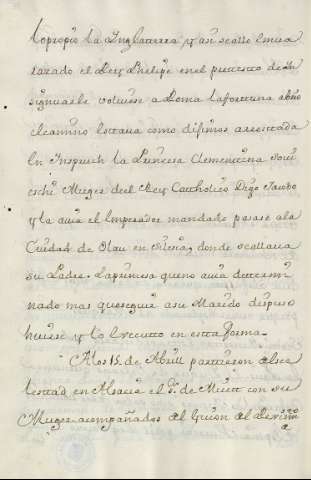 lo propio la Inglaterra y asi se allo embarazado el Rey Phelipe en el
signuarle volviese a Roma la fortuna abrio
el camino Estava como difimos arrestada
En Inspruch la Princesa Clementina Sovi
eschi Muger del Rey Catholico Digo Jacobo
y la avia el Emperador mandado pasase a la
Ciudad de Olau en Silesia, donde se allava
su Padre. la princesa que no avia determi
nado mas que seguir a su Marido dispuso
huirse y lo Executo en esta forma.
A los 15. de Abril partieron de Sele
testad en Alsacia el Sr. de Misett con su
Muger acompañados del